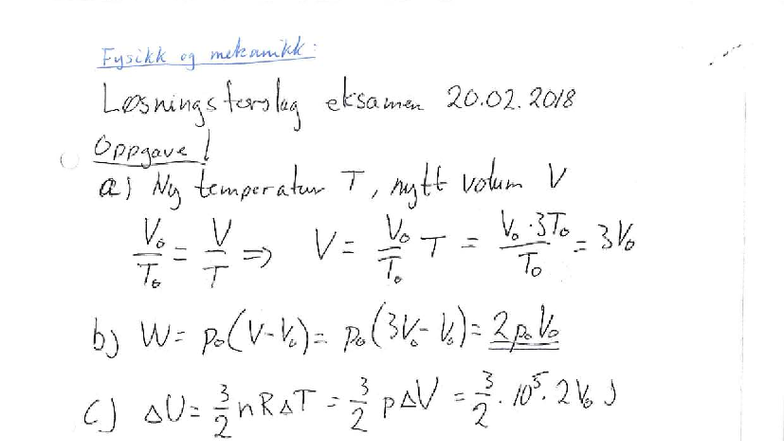 Fysikk og mekanikk:
Løsningsforslag eksamen 20.02.2018
Oppgave 1
a) Ny temperatur T, nytt volum V
V₀/T₀ = V/T ⇒ V = V₀/T₀ T = V₀·3T₀/T₀ = 3V₀
b) W = p₀(V-V₀) = p₀(3V₀-V₀) = 2p₀V₀
c) ΔU = 3/2 nRΔT = 3/2 pΔV = 3/2 · 10⁵ · 2V₀ J